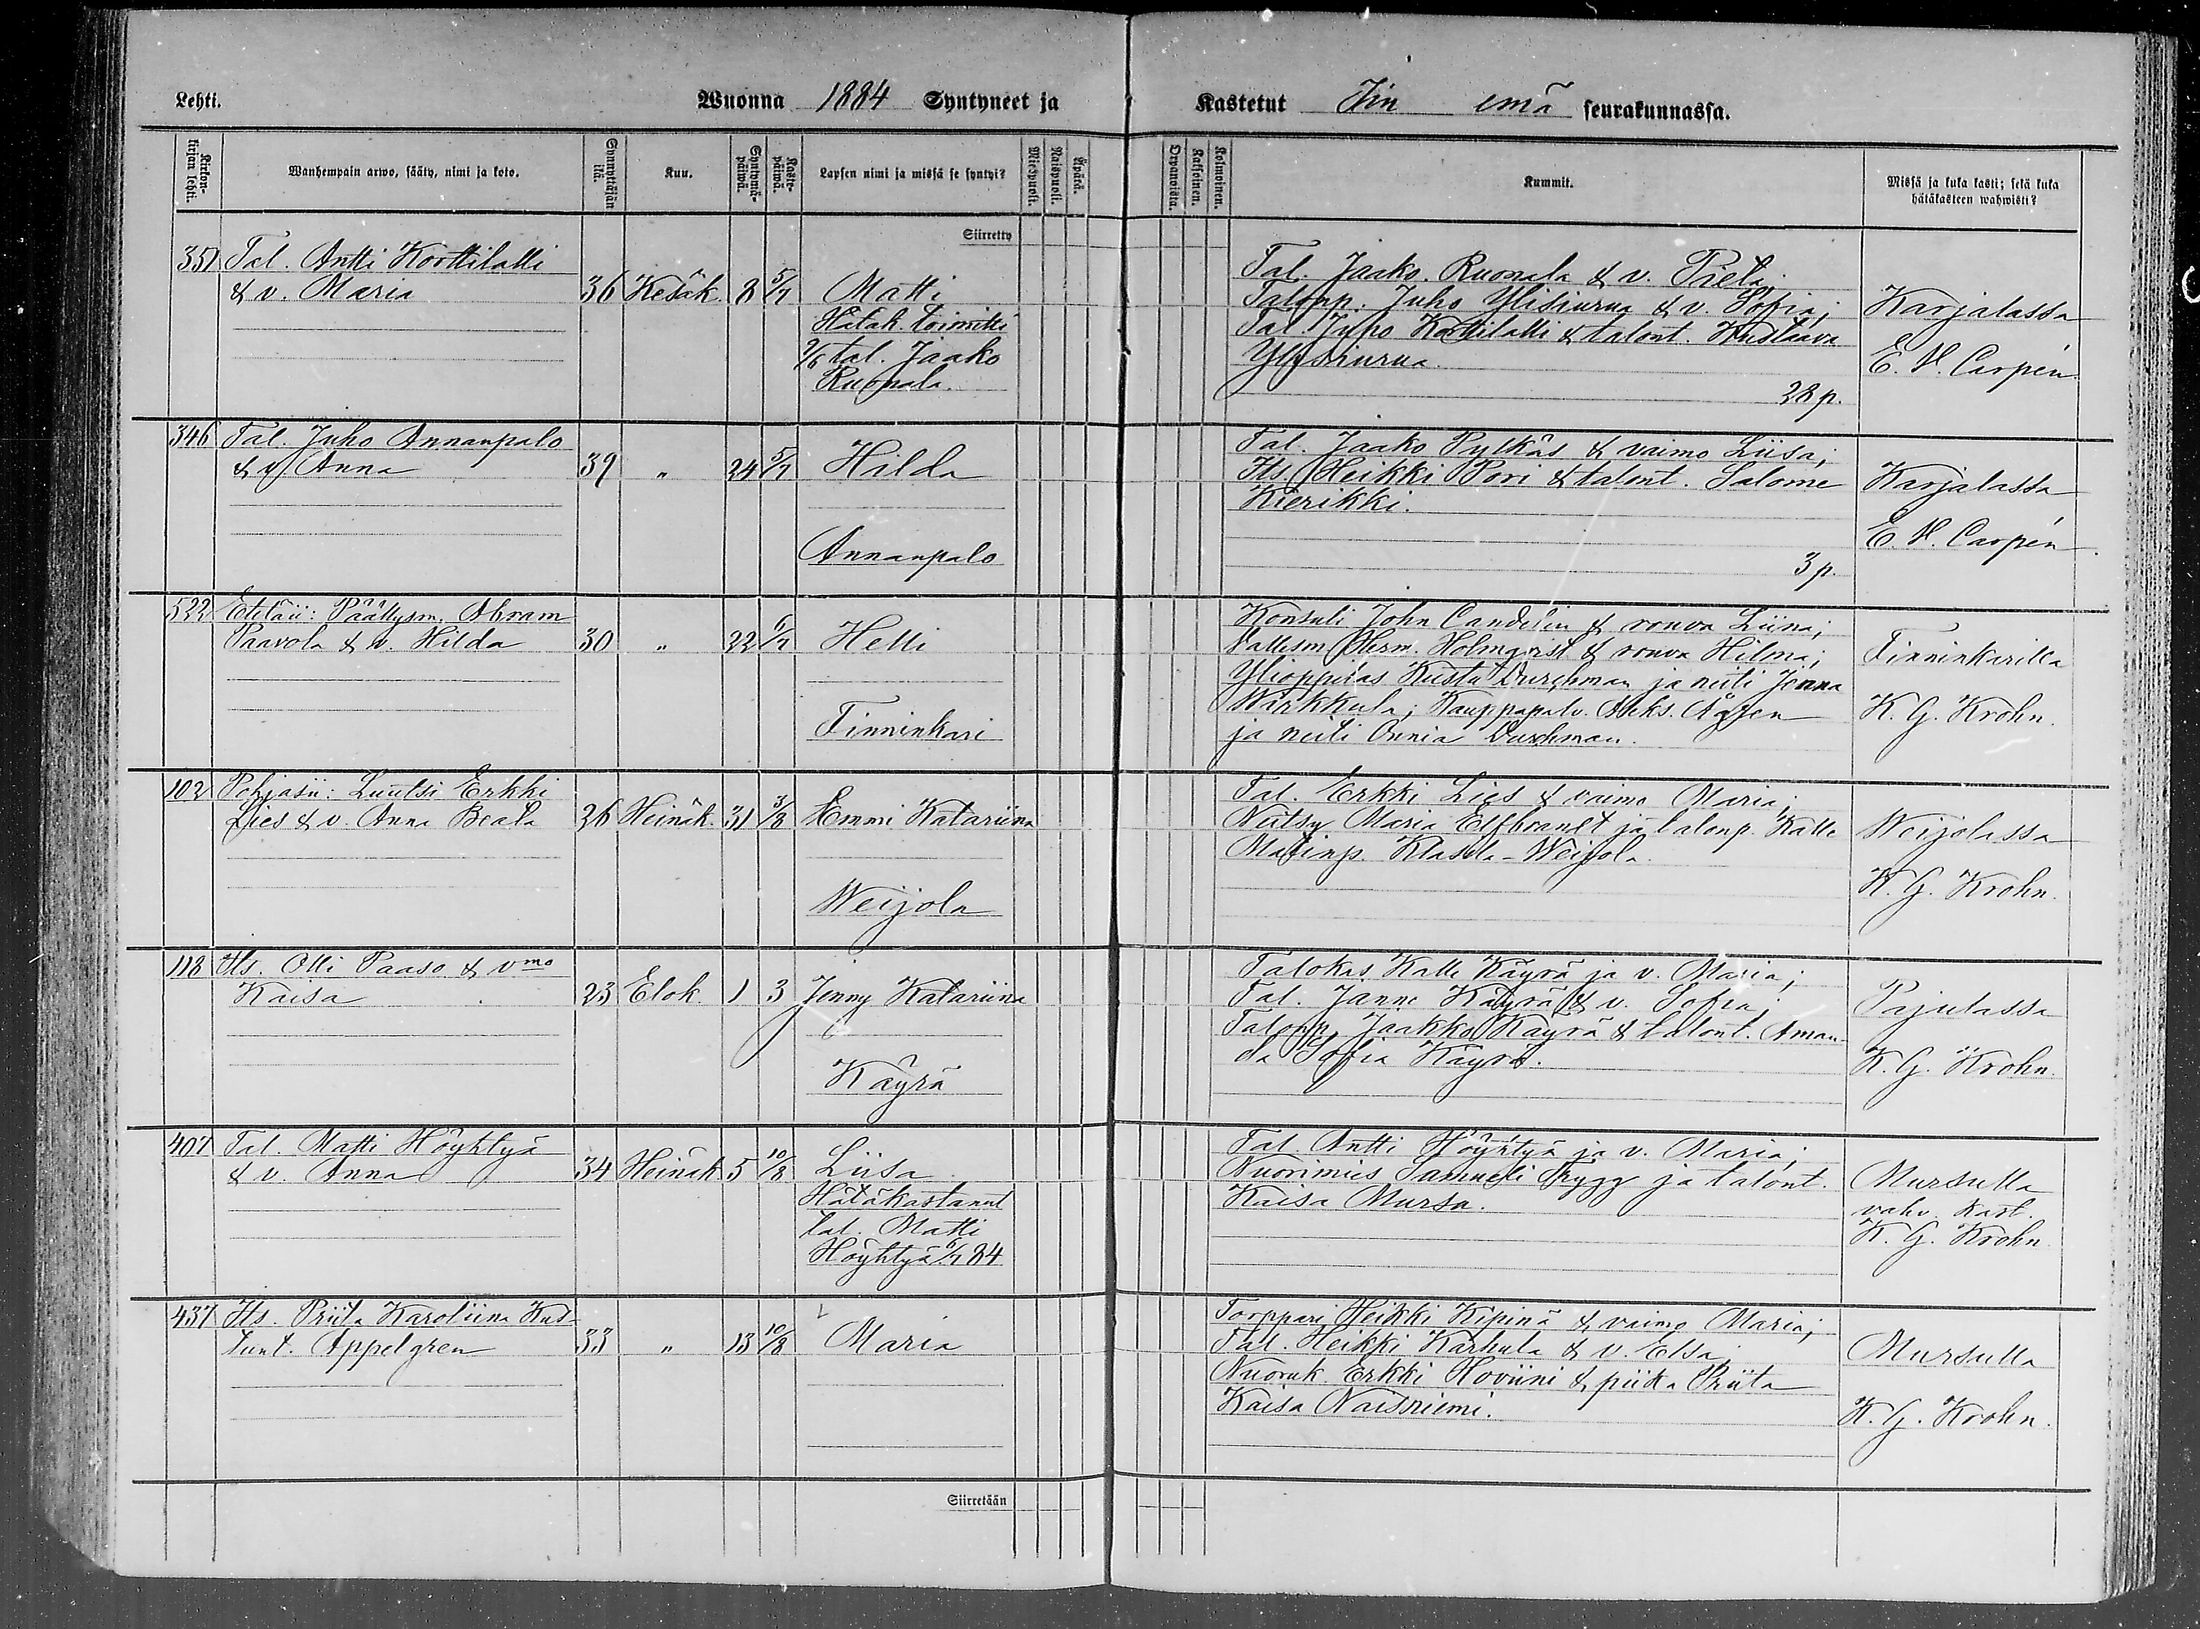 Lehti.
Wuonna 1884 Syntyneet ja
Kastetut Iin emä seurakunnassa.
Kirkon-kirjan lehti.
Wanhempain arwo, sääty, nimi ja koto.
Synnyttäjän ikä.
Kuu.
Syntymä-päiwä.
Kaste-päiwä.
Lapsen nimi ja missä se syntyi?
Miespuoli.
Naispuoli.
Äpärä.
Orpanoista.
Kaksoinen.
Kolmoinen.
Kummit.
Missä ja kuka kasti; sekä kuka
hätäkasteen wahwisti?
Siirretty
351 Tal. Antti Korttilatti
& v. Maria 36 Kesäk. 8 5/7 Matti
Hätäk. toimitti
9/6 tal. Jaako
Ruonala.
Tal. Jaako Ruonala & v. Pieta;
Talonp. Juho Yliniurua & v. Sofia;
Tal. Juho Korttilatti & talont. Kustaava
28 p.
Karjalassa
E. V. Carpén.
346 Tal. Juho Annanpalo
& v. Anna 39 " 24 5/7 Hilda
Annanpalo
Tal. Jaako Pytkäs & vaimo Liisa;
Its. Heikki Pori & talont. Salome
Kierikki.
3 p.
Karjalassa
E. V. Carpén.
522 Eteläii: Päällysm. Abram
Paavola & v. Hilda 30 " 22 6/7 Helli
Tinninkari
Konsuli John Candelin & rouva Liina;
Herm. Holmqvist & rouva Hilma;
Ylioppilas Kusta Durchman ja neiti Jenna
Warkkula; Kauppapalv. Aleks. Ågren
ja neiti Onnia Durchman.
Tinninkarilla
K. G. Krohn.
102 Pohjasii: Luutsi Erkki
Lies & v. Anna Beata 26 Heinäk. 31 3/8 Emmi Katariina
Weijola
Tal. Erkki Lies & vaimo Maria;
Maria Elfbrandt ja talonp. Kalle
Matinp. Klasila-Weijola.
Weijolassa
K. G. Krohn.
118 Its. Olli Paaso & vmo
Kaisa 23 Elok. 1 3 Jenny Katariina
Käyrä
Talokas Kalle Käyrä ja v. Maria;
Tal. Janne Käyrä & v. Sofia;
Talonp. Jaakko Käyrä & talont. Aman-
da Sofia Käyrä.
Pajulassa
K. G. Krohn.
407 Tal. Matti Höyhtyä
& v. Anna 34 Heinäk. 5 10/8 Liisa
Hätäkastanut
tal. Matti
Höyhtyä 6/7 84
Tal. Antti Höyhtyä ja v. Maria;
Nuorimies Samueli Trygg ja talont.
Kaisa Mursu.
Mursulla
vahv. kast.
K. G. Krohn.
437 Its. Priita Karoliina Kus-
tunt. Appelgren 33 " 13 10/8 Maria
Torppari Heikki Kipinä & vaimo Maria;
Tal. Heikki Karhula & v. Elsa;
Nuoruk. Erkki Hoviini & piika Priita
Kaisa Naisniemi.
Mursulla
K. G. Krohn.
Siirretään